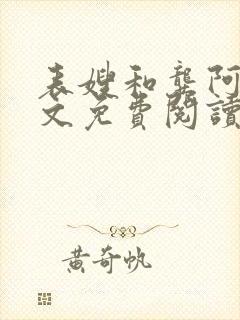 表嫂和龔阿
文免費閱讀
黃奇帆